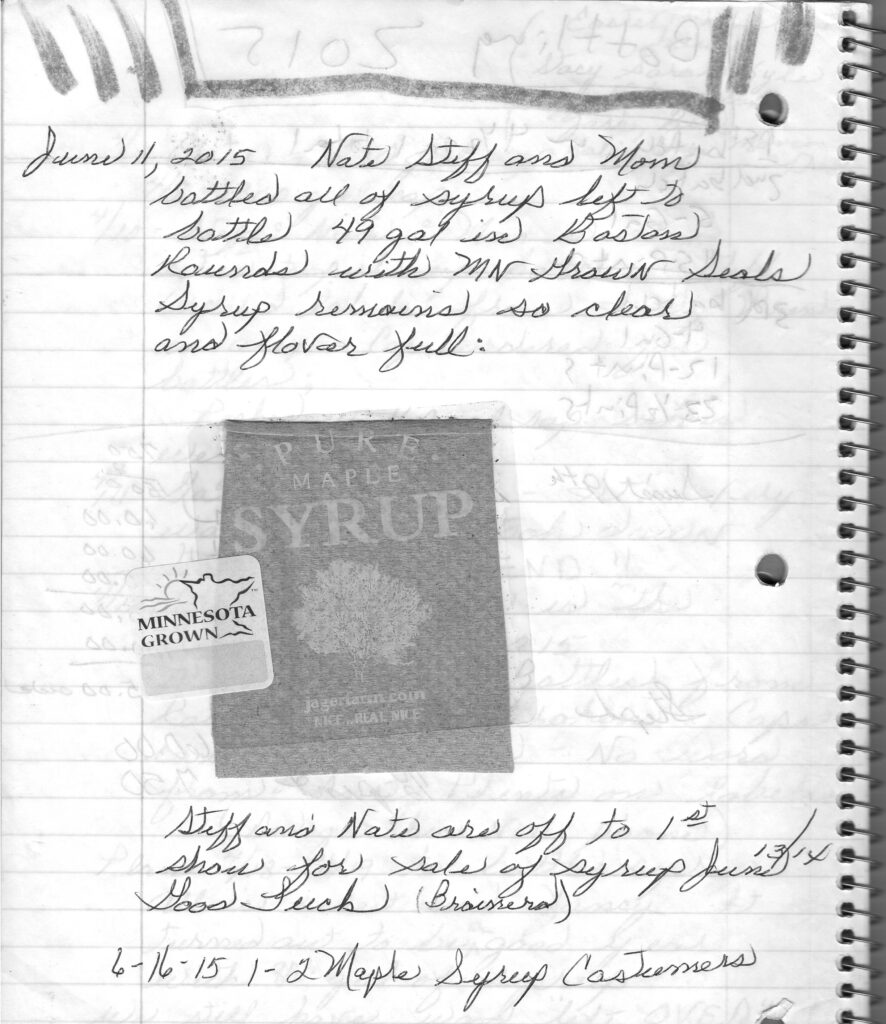 June 11, 2015 Nate Steff and Mom
bottled all of syrup left to
bottle 49 gal in Boston
Rounds with MN Grown Seals
Syrup remains so clear
and flover full:
PURE
MAPLE
SYRUP
MINNESOTA
GROWN
jagerfarm.com
NICE...REAL NICE
Steff and Nate are off to 1st
show for sale of syrup June 13/14
Good Luck (Brainerd)
6-16-15 1-2 Maple Syrup Costumers